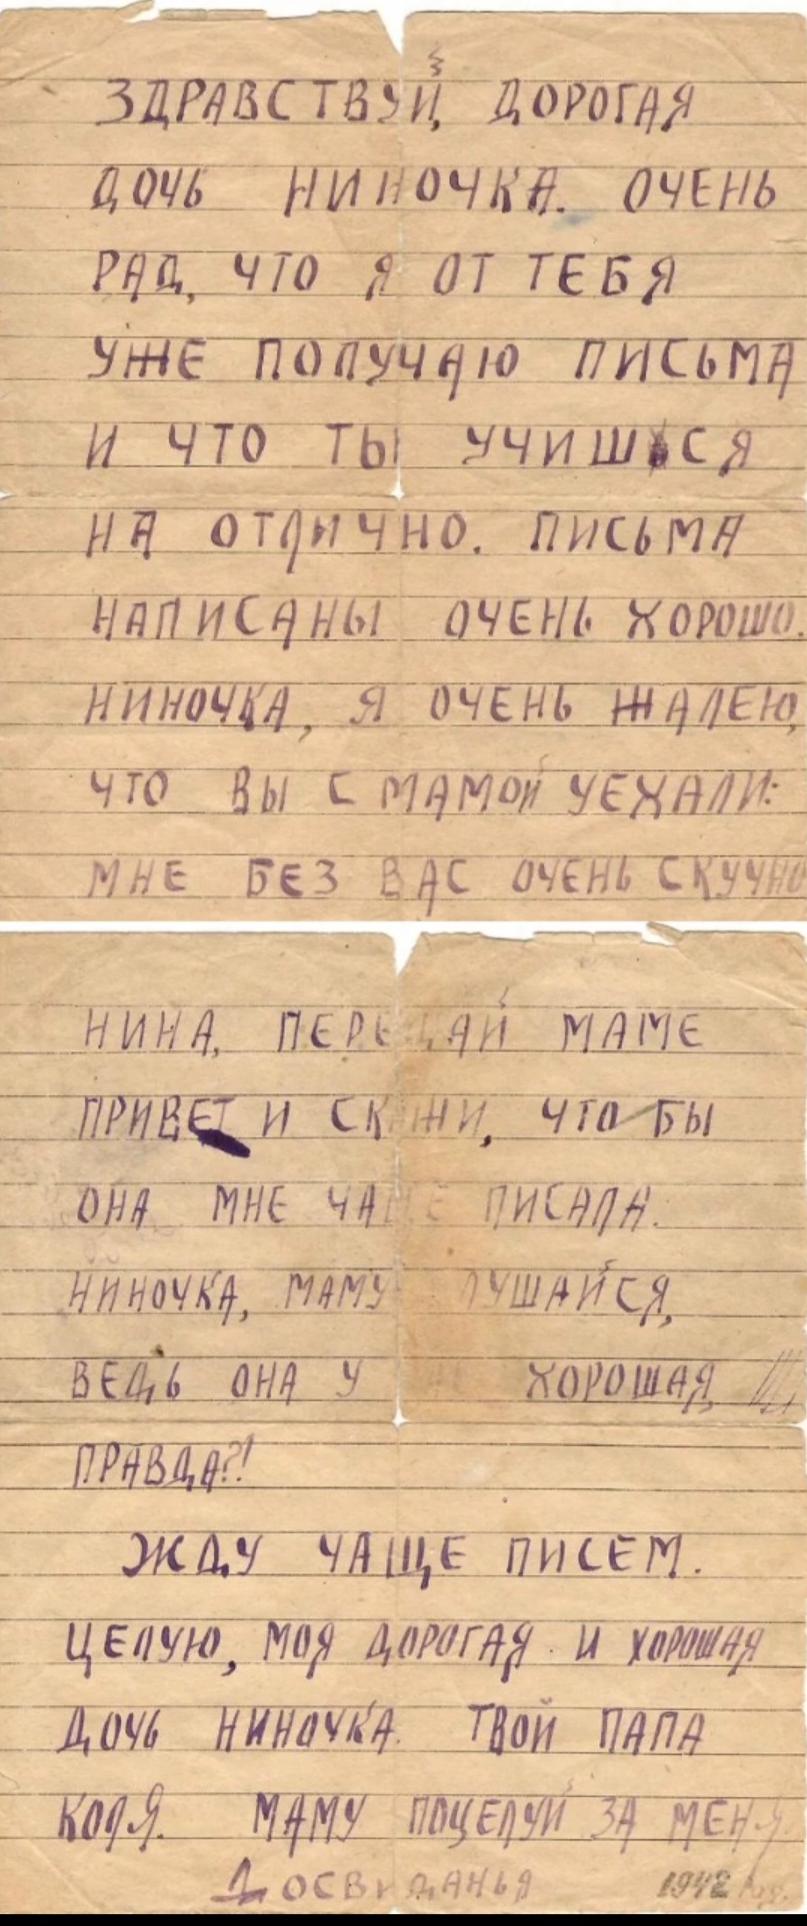 ЗДРАВСТВУЙ, ДОРОГАЯ
ДОЧЬ НИНОЧКА. ОЧЕНЬ
РАД, ЧТО Я ОТ ТЕБЯ
УЖЕ ПОЛУЧАЮ ПИСЬМА
И ЧТО ТЫ УЧИШЬСЯ
НА ОТЛИЧНО. ПИСЬМА
НАПИСАНЫ ОЧЕНЬ ХОРОШО.
НИНОЧКА, Я ОЧЕНЬ ЖАЛЕЮ,
ЧТО ВЫ С МАМОЙ УЕХАЛИ:
МНЕ БЕЗ ВАС ОЧЕНЬ СКУЧНО
НИНА, ПЕРЕДАЙ МАМЕ
ПРИВЕТ И СКАЖИ, ЧТО БЫ
ОНА МНЕ ЧАЩЕ ПИСАЛА.
НИНОЧКА, МАМУ СЛУШАЙСЯ,
ВЕДЬ ОНА У ХОРОШАЯ,
ПРАВДА?!
ЖДУ ЧАЩЕ ПИСЕМ.
ЦЕЛУЮ, МОЯ ДОРОГАЯ И ХОРОШАЯ
ДОЧЬ НИНОЧКА. ТВОЙ ПАПА
КОЛЯ. МАМУ ПОЦЕЛУЙ ЗА МЕНЯ.
ДОСВИДАНЬЯ 1942